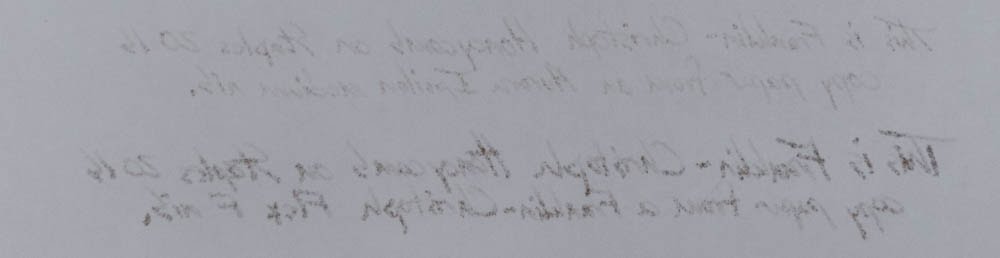 This is Franklin-Christoph Honeycomb on Staples 20 lb
copy paper from an Aurora Ipsilon medium nib.
This is Franklin-Christoph Honeycomb on Staples 20 lb
copy paper from a Franklin-Christoph Flex F nib.